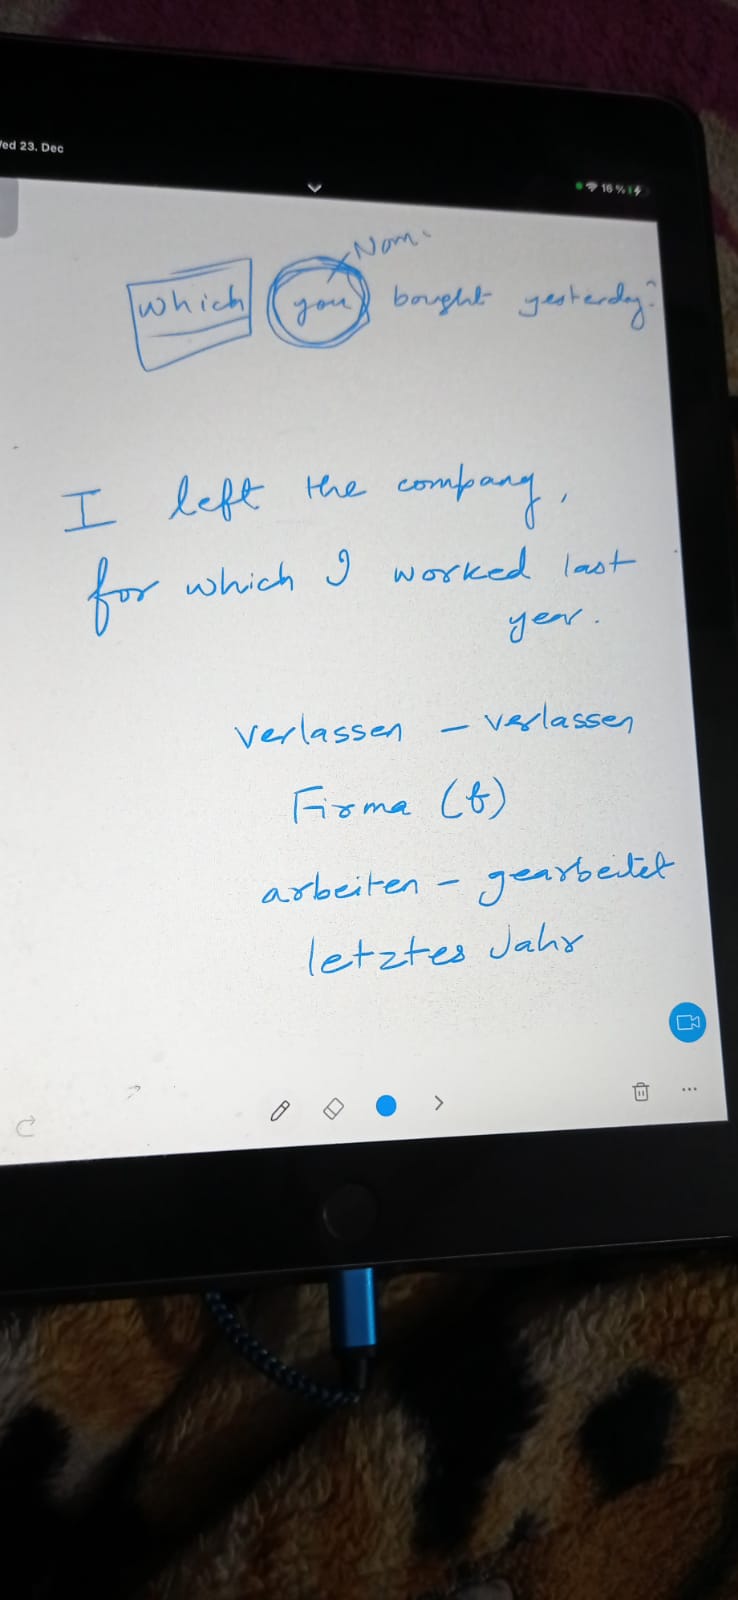 Wed 23. Dec
16 %
Nom.
which you bought yesterday?
I left the company,
for which I worked last
year.
verlassen – verlassen
Firma (f)
arbeiten – gearbeitet
letztes Jahr